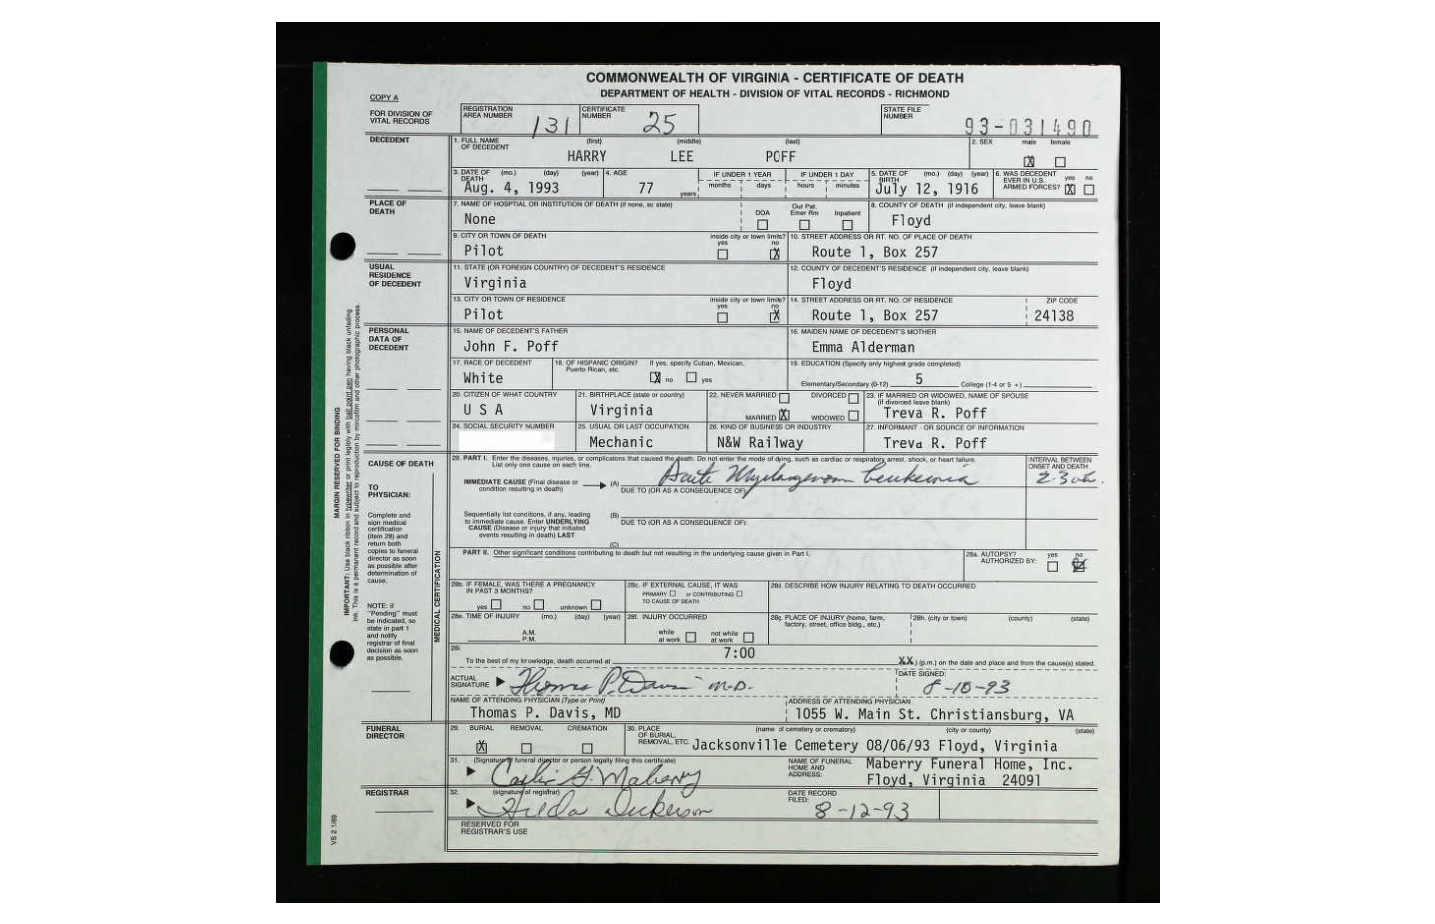 COMMONWEALTH OF VIRGINIA - CERTIFICATE OF DEATH
DEPARTMENT OF HEALTH - DIVISION OF VITAL RECORDS - RICHMOND
COPY A
FOR DIVISION OF VITAL RECORDS
REGISTRATION AREA NUMBER 131
CERTIFICATE NUMBER 25
STATE FILE NUMBER 93-031490
DECEDENT
1. FULL NAME OF DECEDENT (first) (middle) (last)
HARRY LEE POFF
2. SEX male female
X
3. DATE OF DEATH (mo.) (day) (year)
Aug. 4, 1993
4. AGE
77 years
IF UNDER 1 YEAR months days
IF UNDER 1 DAY hours minutes
5. DATE OF BIRTH (mo.) (day) (year)
July 12, 1916
6. WAS DECEDENT EVER IN U.S. ARMED FORCES? yes no
X
PLACE OF DEATH
7. NAME OF HOSPTIAL OR INSTITUTION OF DEATH (if none, so state)
None
DOA Out Pat. Emer Rm Inpatient
8. COUNTY OF DEATH (if independent city, leave blank)
Floyd
9. CITY OR TOWN OF DEATH
Pilot
inside city or town limits? yes no
X
10. STREET ADDRESS OR RT. NO. OF PLACE OF DEATH
Route 1, Box 257
USUAL RESIDENCE OF DECEDENT
11. STATE (OR FOREIGN COUNTRY) OF DECEDENT'S RESIDENCE
Virginia
12. COUNTY OF DECEDENT'S RESIDENCE (if independent city, leave blank)
Floyd
13. CITY OR TOWN OF RESIDENCE
Pilot
inside city or town limits? yes no
X
14. STREET ADDRESS OR RT. NO. OF RESIDENCE
Route 1, Box 257
ZIP CODE
24138
PERSONAL DATA OF DECEDENT
15. NAME OF DECEDENT'S FATHER
John F. Poff
16. MAIDEN NAME OF DECEDENT'S MOTHER
Emma Alderman
17. RACE OF DECEDENT
White
18. OF HISPANIC ORIGIN? If yes, specify Cuban, Mexican, Puerto Rican, etc.
X no yes
19. EDUCATION (Specify only highest grade completed)
Elementary/Secondary (0-12) 5 College (1-4 or 5 +)
20. CITIZEN OF WHAT COUNTRY
U S A
21. BIRTHPLACE (state or country)
Virginia
22. NEVER MARRIED DIVORCED
MARRIED X WIDOWED
23. IF MARRIED OR WIDOWED, NAME OF SPOUSE (if divorced leave blank)
Treva R. Poff
24. SOCIAL SECURITY NUMBER
25. USUAL OR LAST OCCUPATION
Mechanic
26. KIND OF BUSINESS OR INDUSTRY
N&W Railway
27. INFORMANT - OR SOURCE OF INFORMATION
Treva R. Poff
CAUSE OF DEATH
TO PHYSICIAN:
Complete and sign medical certification (item 28) and return both copies to funeral director as soon as possible after determination of cause.
NOTE: if "Pending" must be indicated, so state in part 1 and notify registrar of final decision as soon as possible.
MEDICAL CERTIFICATION
28. PART I. Enter the diseases, injuries, or complications that caused the death. Do not enter the mode of dying, such as cardiac or respiratory arrest, shock, or heart failure.
List only one cause on each line.
INTERVAL BETWEEN ONSET AND DEATH
IMMEDIATE CAUSE (Final disease or condition resulting in death) (A) Acute Leukemia
DUE TO (OR AS A CONSEQUENCE OF):
Sequentially list conditions, if any, leading to immediate cause. Enter UNDERLYING CAUSE (Disease or injury that initiated events resulting in death) LAST
(B)
DUE TO (OR AS A CONSEQUENCE OF):
(C)
PART II. Other significant conditions contributing to death but not resulting in the underlying cause given in Part I.
28a. AUTOPSY? AUTHORIZED BY: yes no
28b. IF FEMALE, WAS THERE A PREGNANCY IN PAST 3 MONTHS?
yes no unknown
28c. IF EXTERNAL CAUSE, IT WAS
PRIMARY or CONTRIBUTING
TO CAUSE OF DEATH
28d. DESCRIBE HOW INJURY RELATING TO DEATH OCCURRED
28e. TIME OF INJURY (mo.) (day) (year)
A.M.
P.M.
28f. INJURY OCCURRED
while at work not while at work
28g. PLACE OF INJURY (home, farm, factory, street, office bldg., etc.)
28h. (city or town) (county) (state)
28i.
To the best of my knowledge, death occurred at 7:00 XX (p.m.) on the date and place and from the cause(s) stated.
ACTUAL SIGNATURE Thomas P. Davis M.D.
DATE SIGNED: 8-10-93
NAME OF ATTENDING PHYSICIAN (Type or Print)
Thomas P. Davis, MD
ADDRESS OF ATTENDING PHYSICIAN
1055 W. Main St. Christiansburg, VA
FUNERAL DIRECTOR
29. BURIAL REMOVAL CREMATION
X
30. PLACE OF BURIAL, REMOVAL, ETC. (name of cemetery or crematory) (city or county) (state)
Jacksonville Cemetery 08/06/93 Floyd, Virginia
31. (Signature of funeral director or person legally filing this certificate)
Maberry
NAME OF FUNERAL HOME AND ADDRESS:
Maberry Funeral Home, Inc.
Floyd, Virginia 24091
REGISTRAR
32. (signature of registrar)
Hilda Dickerson
DATE RECORD FILED: 8-12-93
RESERVED FOR REGISTRAR'S USE
MARGIN RESERVED FOR BINDING
IMPORTANT: Use black ribbon in typewriter or print legibly with ball point pen having black unfading ink. This is a permanent record and subject to reproduction by microfilm and other photographic process.
VS 2 1/89